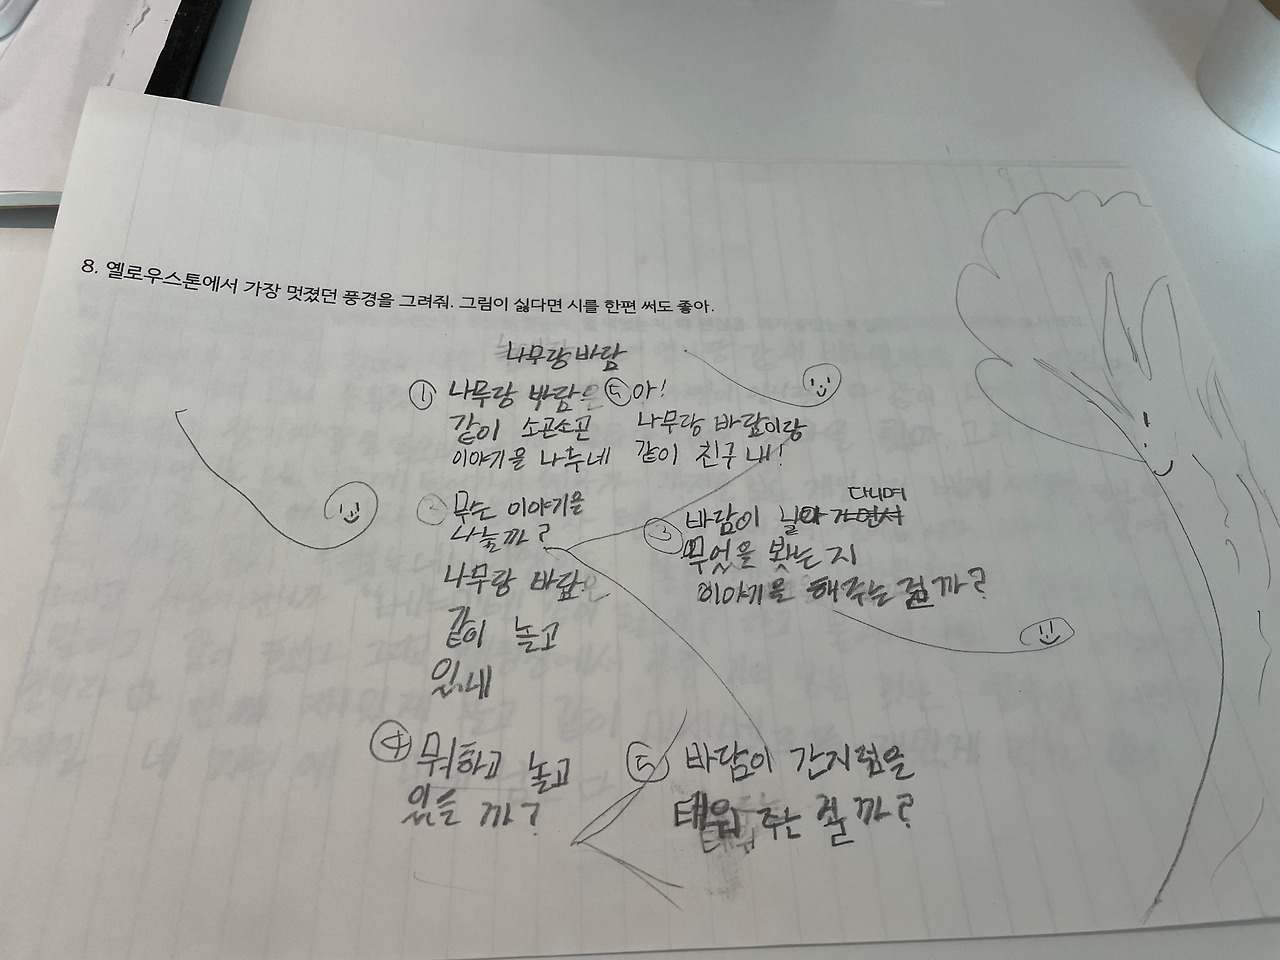 8. 옐로우스톤에서 가장 멋졌던 풍경을 그려줘. 그림이 싫다면 시를 한편 써도 좋아.
나무랑 바람
① 나무랑 바람은
같이 소곤소곤
이야기을 나누네
② 무슨 이야기을
나눌까?
나무랑 바람은
같이 놀고
있네
③ 바람이 날아 다니며
무엇을 봤는 지
이야기을 해주는 걸까?
④ 뭐하고 놀고
있을 까?
⑤ 바람이 간지럼을
태워 주는 걸까?
⑥ 아!
나무랑 바람이랑
같이 친구 내!